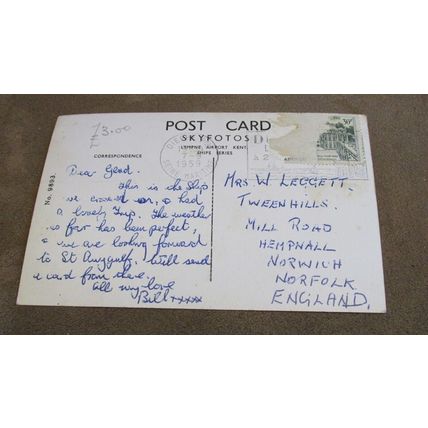 £3.00
POST CARD
SKYFOTOS
LYMPNE AIRPORT KENT.
SHIPS SERIES
CORRESPONDENCE
No. 9893.
1959
Dear Gead.
This is the ship
we crossed on, & had
a lovely trip. The weather
so far has been perfect,
& we are looking forward
to St. Will send
a card from there.
All my love
Bill xxxxx
MRS. W. LEGGETT.
TWEENHILLS.
MILL ROAD
HEMPNALL
NORWICH
NORFOLK.
ENGLAND.